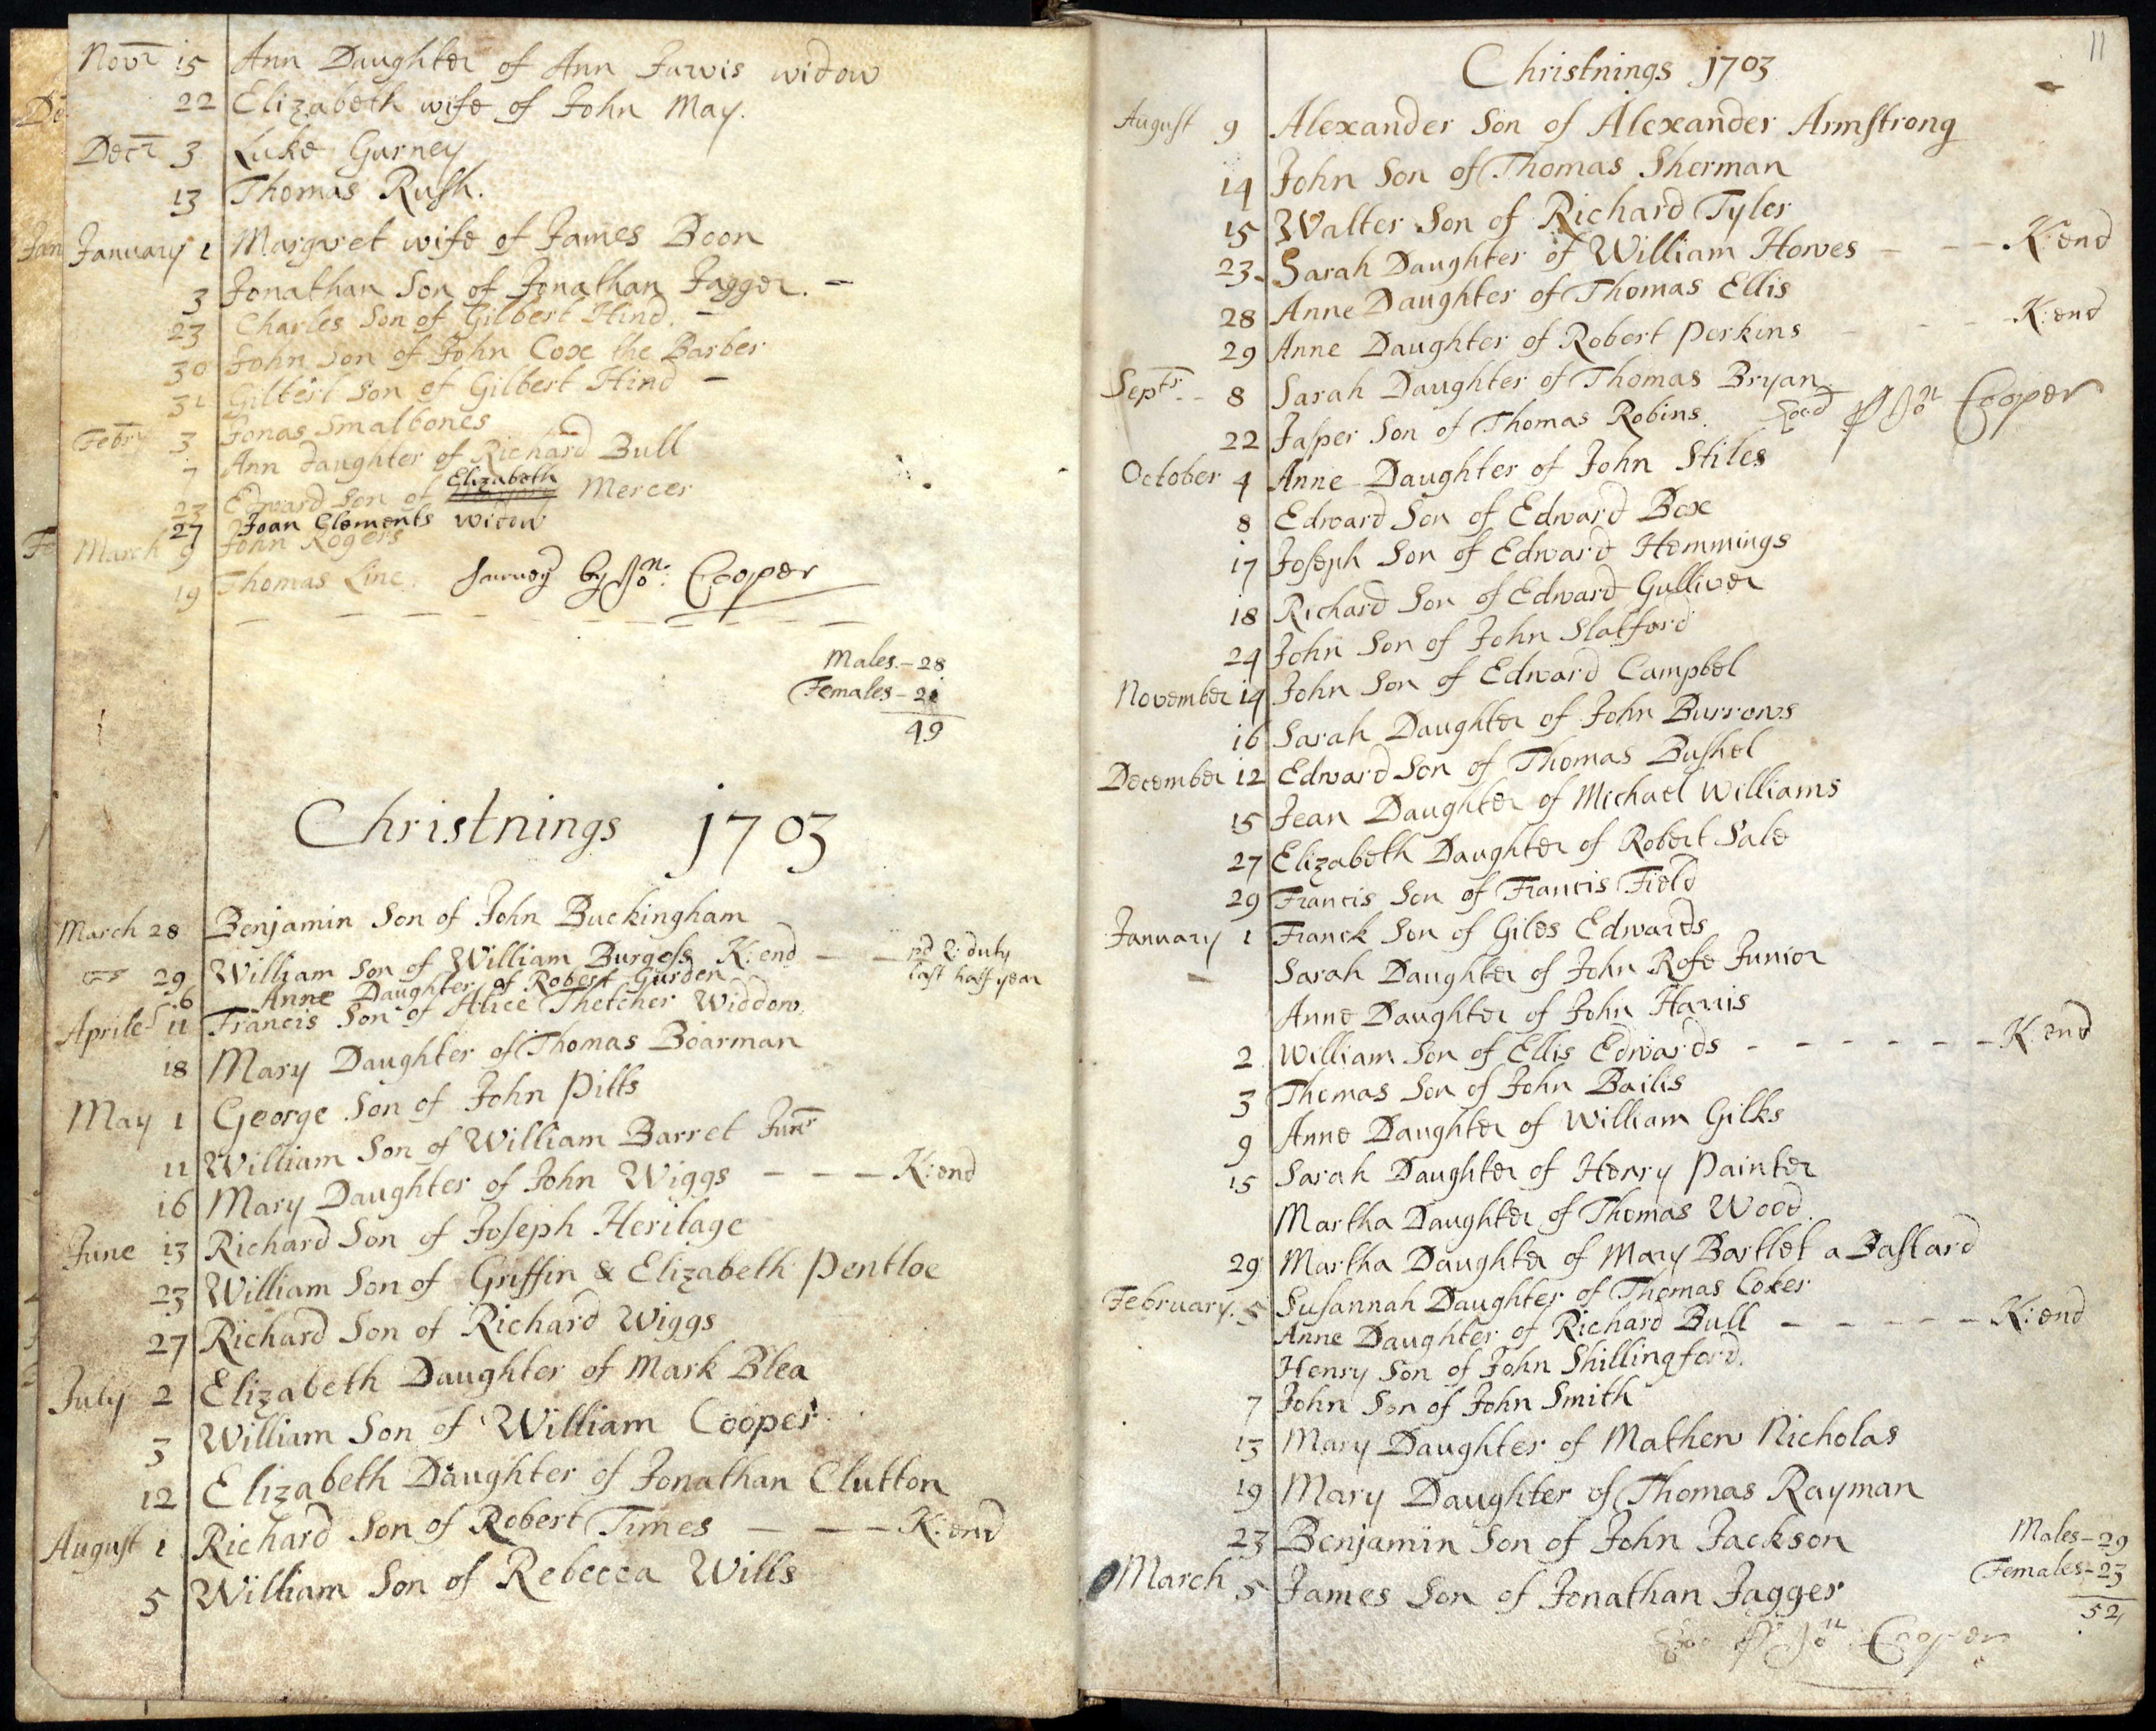 Novr 15 Ann Daughter of Ann Jarvis widow
22 Elizabeth wife of John May.
Decr 3 Luke Gurney
13 Thomas Rush.
January 1 Margaret wife of James Boon
3 Jonathan Son of Jonathan Jagger. -
23 Charles Son of Gilbert Hind. -
30 John Son of John Cox the Barber
31 Gilbert Son of Gilbert Hind -
Febry 3 Jonas Smalbones
7 Ann daughter of Richard Bull
23 Edward Son of Elizabeth Mercer
27 Joan Clements widow
March 9 John Rogers
19 Thomas Line. by Jon: Cooper
Males - 28
Females - 21
49
Christnings 1703
March 28 Benjamin Son of John Buckingham
29 William Son of William Burgess K:end - - pd Q: duty
last half year
6 Anne Daughter of Robert Gurden
Aprile 11 Francis Son of Alice Thetcher Widdow.
18 Mary Daughter of Thomas Boarman
May 1 George Son of John Pitts
11 William Son of William Barret Junr
16 Mary Daughter of John Wiggs - - - K:end
June 13 Richard Son of Joseph Heritage
23 William Son of Griffin & Elizabeth Pentloe
27 Richard Son of Richard Wiggs
July 2 Elizabeth Daughter of Mark Blea
3 William Son of William Cooper
12 Elizabeth Daughter of Jonathan Clutton
August 1 Richard Son of Robert Times - - - K:end
5 William Son of Rebecca Wills
11
Christnings 1703
August 9 Alexander Son of Alexander Armstrong
14 John Son of Thomas Sherman
15 Walter Son of Richard Tyler
23 Sarah Daughter of William Howes - - - K:end
28 Anne Daughter of Thomas Ellis
29 Anne Daughter of Robert Perkins - - - K:end
Septr - - 8 Sarah Daughter of Thomas Bryan
22 Jasper Son of Thomas Robins. Jon Cooper
October 4 Anne Daughter of John Stiles
8 Edward Son of Edward Box
17 Joseph Son of Edward Hemmings
18 Richard Son of Edward Gulliver
24 John Son of John Slatford
November 14 John Son of Edward Campbel
16 Sarah Daughter of John Burrows
December 12 Edward Son of Thomas Bushel
15 Jean Daughter of Michael Williams
27 Elizabeth Daughter of Robert Sale
29 Francis Son of Francis Field
January 1 Franck Son of Giles Edwards
Sarah Daughter of John Rose Junior
Anne Daughter of John Harris
2 William Son of Ellis Edwards - - - - - - K:end
3 Thomas Son of John Bailis
9 Anne Daughter of William Gilks
15 Sarah Daughter of Henry Painter
Martha Daughter of Thomas Wood.
29 Martha Daughter of Mary Bartlet a Bastard
February. 5 Susannah Daughter of Thomas Coker
Anne Daughter of Richard Bull - - - - - K:end
Henry Son of John Shillingford.
7 John Son of John Smith
13 Mary Daughter of Mathew Nicholas
19 Mary Daughter of Thomas Rayman
23 Benjamin Son of John Jackson
March 5 James Son of Jonathan Jagger
Males - 29
Females - 23
52
Jon Cooper